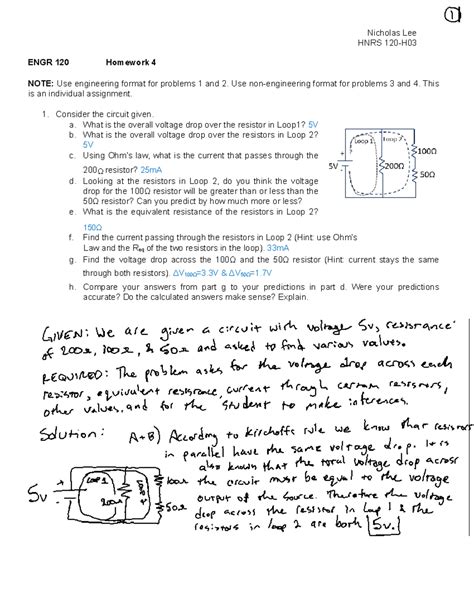 1
Nicholas Lee
HNRS 120-H03
ENGR 120 Homework 4
NOTE: Use engineering format for problems 1 and 2. Use non-engineering format for problems 3 and 4. This
is an individual assignment.
1. Consider the circuit given.
a. What is the overall voltage drop over the resistor in Loop1? 5V
b. What is the overall voltage drop over the resistors in Loop 2?
5V
c. Using Ohm's law, what is the current that passes through the
200Ω resistor? 25mA
d. Looking at the resistors in Loop 2, do you think the voltage
drop for the 100Ω resistor will be greater than or less than the
50Ω resistor? Can you predict by how much more or less?
e. What is the equivalent resistance of the resistors in Loop 2?
150Ω
f. Find the current passing through the resistors in Loop 2 (Hint: use Ohm's
Law and the Req of the two resistors in the loop). 33mA
g. Find the voltage drop across the 100Ω and the 50Ω resistor (Hint: current stays the same
through both resistors). ΔV100Ω=3.3V & ΔV50Ω=1.7V
h. Compare your answers from part g to your predictions in part d. Were your predictions
accurate? Do the calculated answers make sense? Explain.
Loop 1
Loop 2
5V
200Ω
100Ω
50Ω
GIVEN: We are given a circuit with voltage 5V, resistance
of 200Ω, 100Ω, & 50Ω and asked to find various values.
REQUIRED: The problem asks for the voltage drop across each
resistor, equivalent resistance, current through certain resistors,
other values, and for the student to make inferences.
Solution: A+B) According to Kirchoffs rule we know that resistors
in parallel have the same voltage drop. It is
also known that the total voltage drop across
the circuit must be equal to the voltage
output of the source. Therefore the voltage
drop across the resistor in Loop 1 & the
resistors in loop 2 are both 5V.
5V
Loop 1
200Ω
Loop 2
100Ω
50Ω